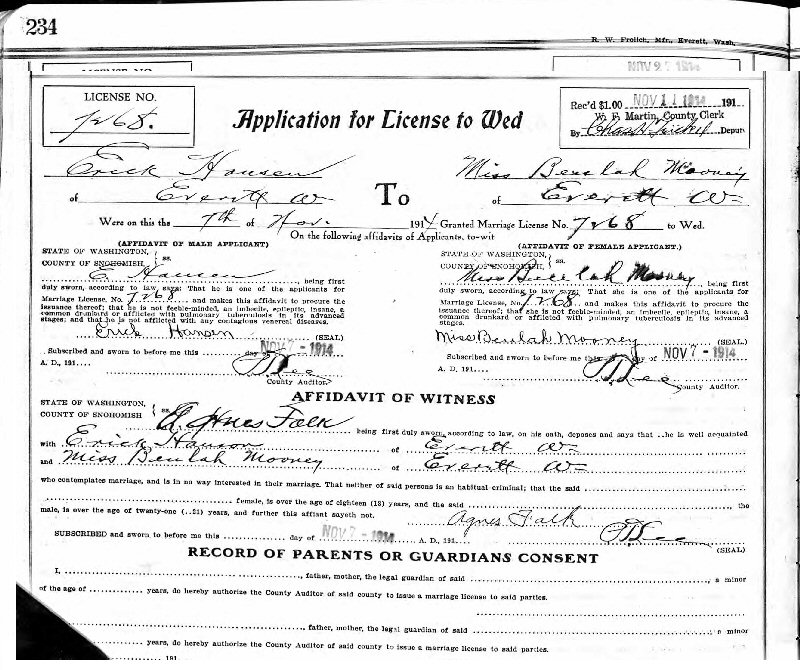 234
R. W. Frolich, Mfr., Everett, Wash.
LICENSE NO.
NOV 27 1914
LICENSE NO.
7268.
Application for License to Wed
Rec'd $1.00 NOV 11 1914 191
W. F. Martin, County Clerk
By Deputy
Erick Hansen To Miss Beulah Mooney
of Everett W- of Everett W-
Were on this the 7th of Nov. 1914 Granted Marriage License No. 7268 to Wed.
On the following affidavits of Applicants, to-wit
(AFFIDAVIT OF MALE APPLICANT)
STATE OF WASHINGTON, } ss.
COUNTY OF SNOHOMISH,
E Hansen being first
duly sworn, according to law, says: That he is one of the applicants for
Marriage License, No. 7268 and makes this affidavit to procure the
issuance thereof; that he is not feeble-minded, an imbecile, epileptic, insane, a
common drunkard or afflicted with pulmonary tuberculosis in its advanced
stages; and that he is not afflicted with any contagious venereal diseases.
Erick Hansen (SEAL)
Subscribed and sworn to before me this day NOV 7 - 1914
A. D., 191
County Auditor.
(AFFIDAVIT OF FEMALE APPLICANT.)
STATE OF WASHINGTON, } ss.
COUNTY OF SNOHOMISH,
Miss Beulah Mooney being first
duly sworn, according to law, says: That she is one of the applicants for
Marriage License, No. 7268 and makes this affidavit to procure the
issuance thereof; that she is not feeble-minded, an imbecile, epileptic, insane, a
common drunkard or afflicted with pulmonary tuberculosis in its advanced
stages.
Miss Beulah Mooney (SEAL)
Subscribed and sworn to before me this day of NOV 7 - 1914
A. D., 191
County Auditor.
AFFIDAVIT OF WITNESS
STATE OF WASHINGTON, } ss.
COUNTY OF SNOHOMISH
Agnes Falk being first duly sworn, according to law, on his oath, deposes and says that ..he is well acquainted
with Erick Hanson of Everett W-
and Miss Beulah Mooney of Everett W-
who contemplates marriage, and is in no way interested in their marriage. That neither of said persons is an habitual criminal; that the said
female, is over the age of eighteen (18) years, and the said , the
male, is over the age of twenty-one (..21) years, and further this affiant sayeth not.
Agnes Falk
SUBSCRIBED and sworn to before me this day of NOV 7 - 1914 A. D., 191
(SEAL)
RECORD OF PARENTS OR GUARDIANS CONSENT
I, , father, mother, the legal guardian of said , a minor
of the age of years, do hereby authorize the County Auditor of said county to issue a marriage license to said parties.
, father, mother, the legal guardian of said , a minor
years, do hereby authorize the County Auditor of said county to issue a marriage license to said parties.
191